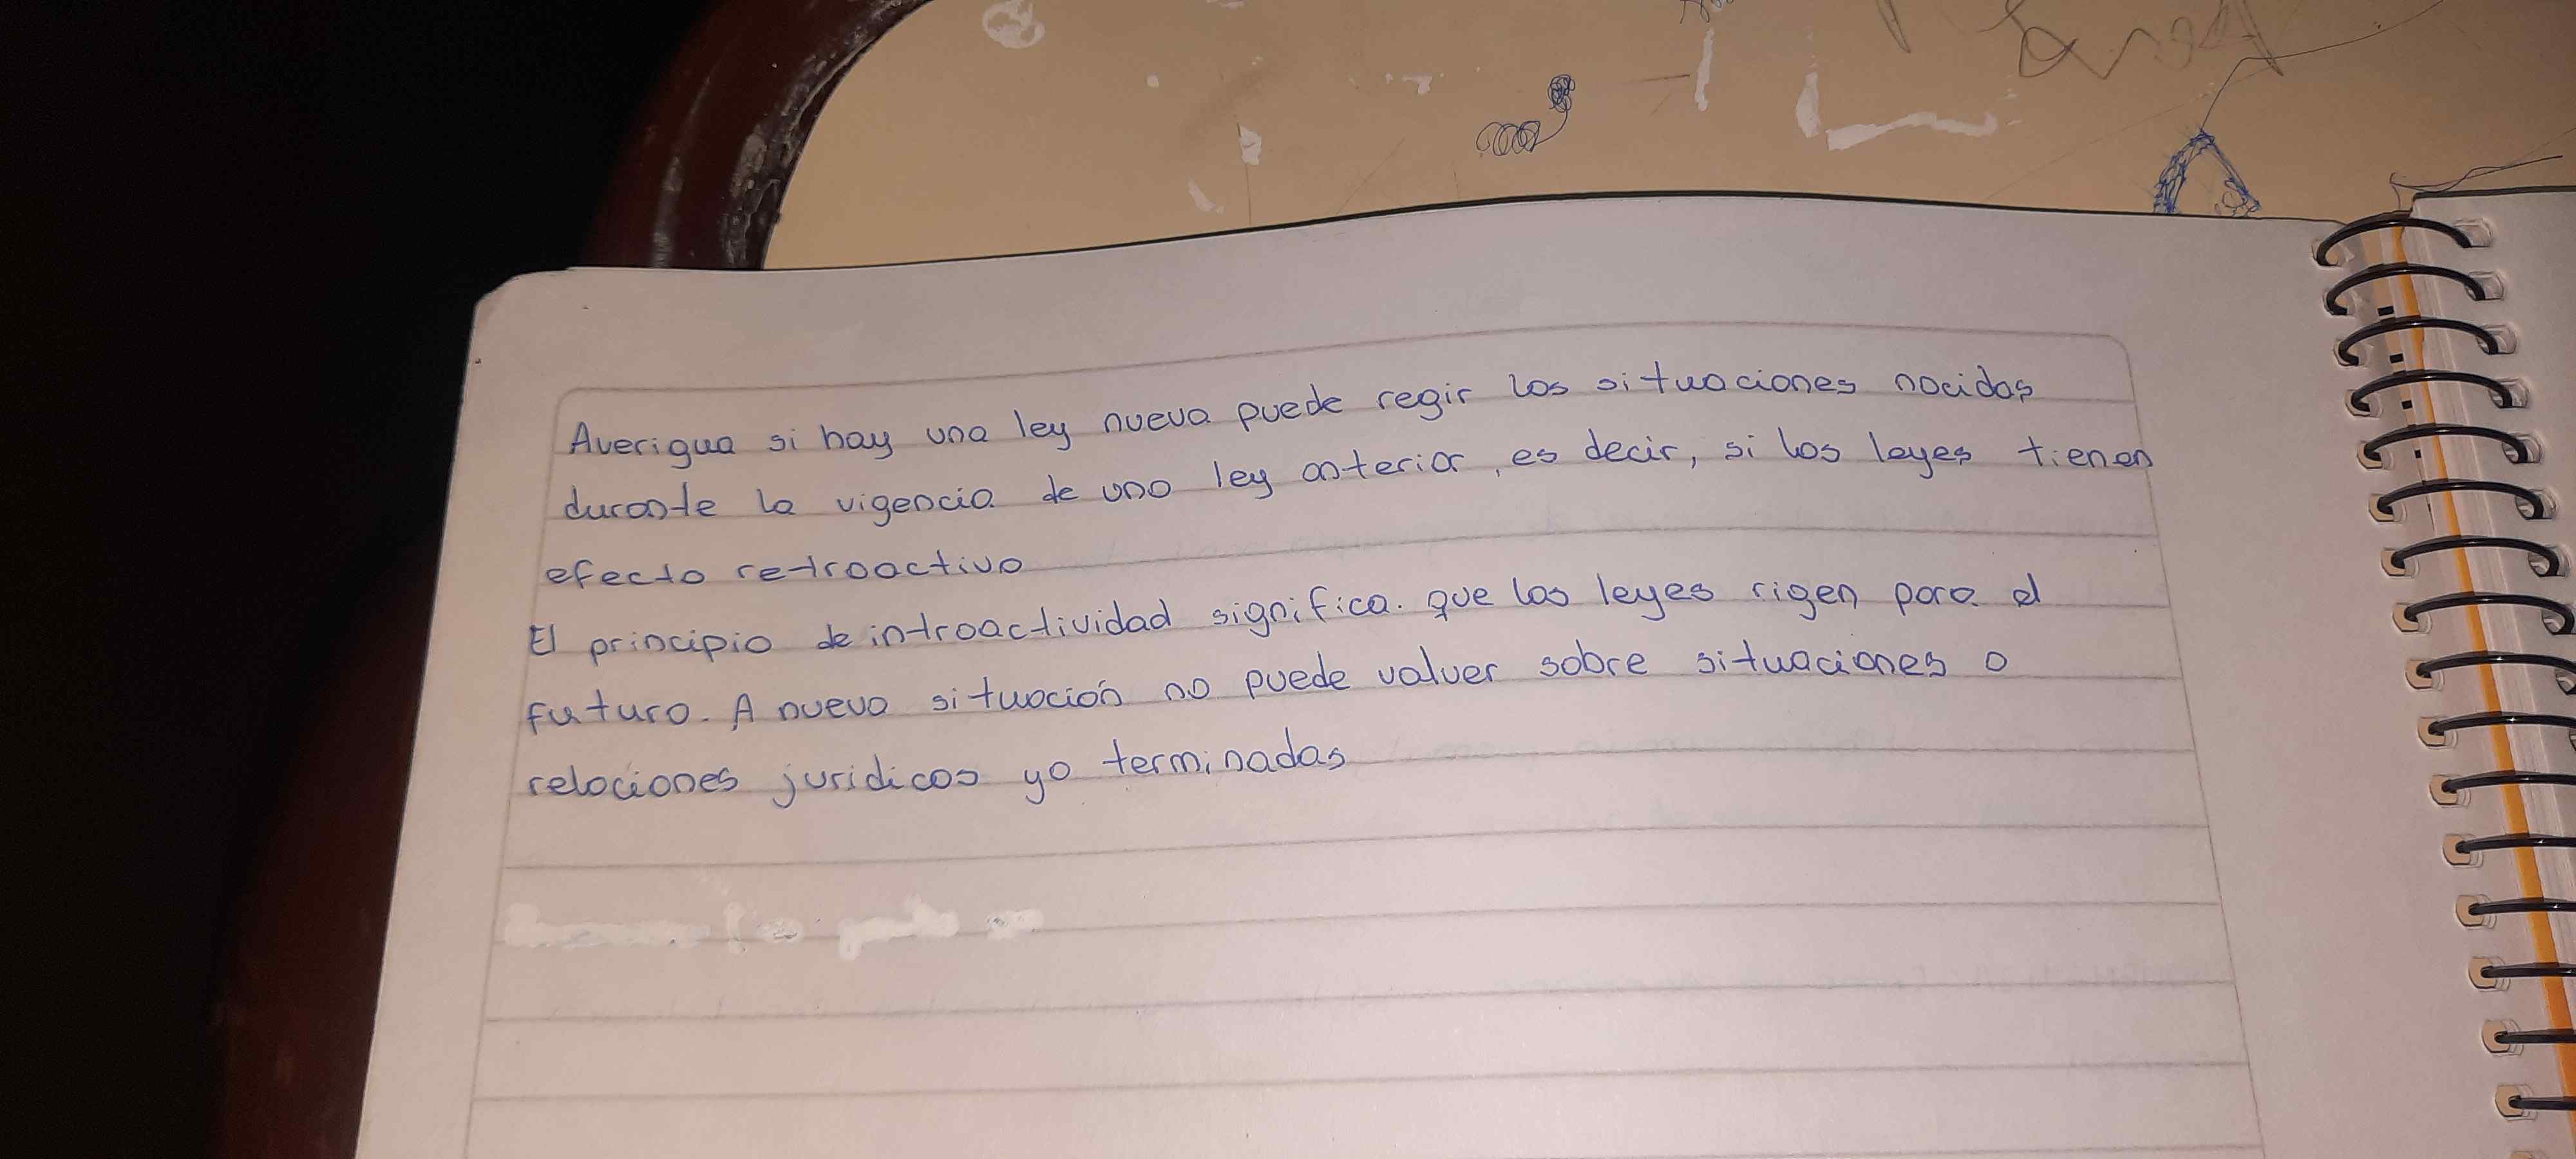 Averigua si hay una ley nueva puede regir las situaciones nacidas
durante la vigencia de una ley anterior, es decir, si las leyes tienen
efecto retroactivo
El principio de introactividad significa. que las leyes rigen para el
futuro. A nueva situación no puede valver sobre situaciones o
relaciones juridicas ya terminadas